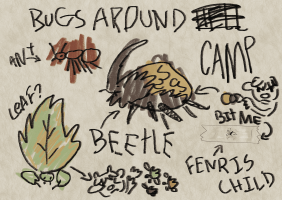 BUGS AROUND
CAMP
ANT
LEAF?
BEETLE
BIT ME
FENRIS
CHILD